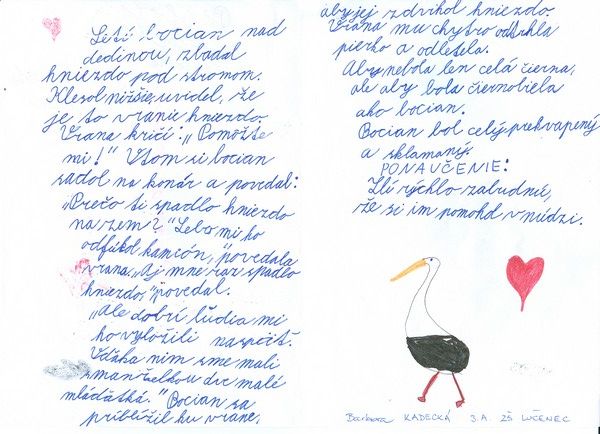 Letí bocian nad
dedinou, zbadal
hniezdo pod stromom.
Klesol nižšie, uvidel, že
je to vranie hniezdo.
Vrana kričí: „Pomôžte
mi!“ Vtom si bocian
sadol na konár a povedal:
„Prečo ti spadlo hniezdo
na zem?“ „Lebo mi ho
odfúkol kamión,“ povedala
vrana. „Aj mne raz spadlo
hniezdo,“ povedal.
„Ale dobrí ľudia mi
ho vyložili naspäť.
Vďaka nim sme mali
s manželkou dve malé
mláďatká.“ Bocian sa
priblížil ku vrane,
aby jej zdvihol hniezdo.
Vrana mu chytro odtrhla
pierko a odletela.
Aby nebola len celá čierna,
ale aby bola čiernobiela
ako bocian.
Bocian bol celý prekvapený
a sklamaný.
PONAUČENIE:
Zlí rýchlo zabudnú,
že si im pomohol v núdzi.
Barbora KADECKÁ 3.A ZŠ LUČENEC